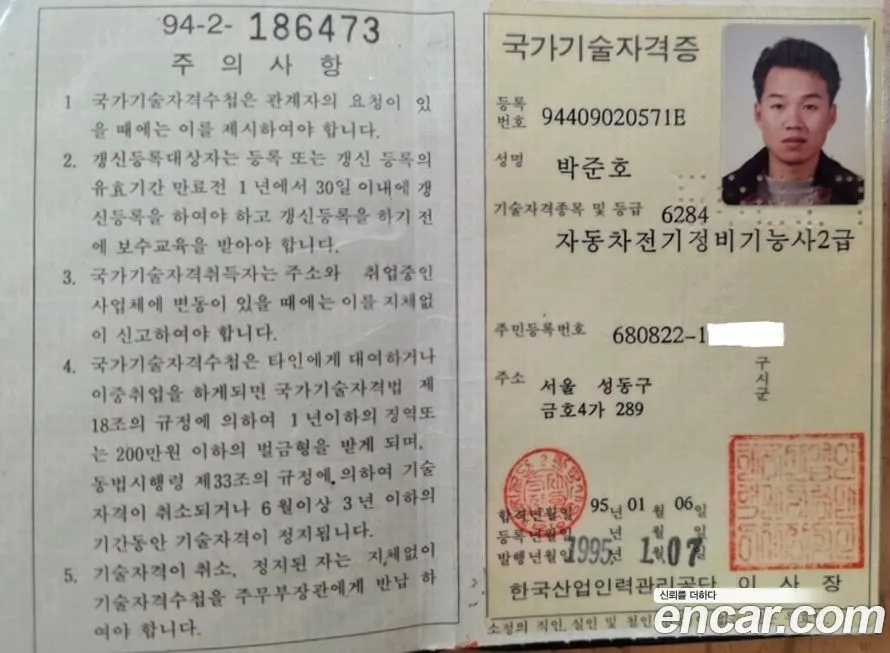 94-2- 186473
주 의 사 항
1 국가기술자격수첩은 관계자의 요청이 있
을 때에는 이를 제시하여야 합니다.
2. 갱신등록대상자는 등록 또는 갱신 등록의
유효기간 만료전 1년에서 30일 이내에 갱
신등록을 하여야 하고 갱신등록을 하기 전
에 보수교육을 받아야 합니다.
3. 국가기술자격취득자는 주소와 취업중인
사업체에 변동이 있을 때에는 이를 지체없
이 신고하여야 합니다.
4. 국가기술자격수첩은 타인에게 대여하거나
이중취업을 하게되면 국가기술자격법 제
18조의 규정에 의하여 1년이하의 징역또
는 200만원 이하의 벌금형을 받게 되며,
동법시행령 제33조의 규정에 의하여 기술
자격이 취소되거나 6월이상 3년 이하의
기간동안 기술자격이 정지됩니다.
5. 기술자격이 취소, 정지된 자는 지체없이
기술자격수첩을 주무부장관에게 반납 하
여야 합니다.
국가기술자격증
등록
번호 94409020571E
성명 박준호
기술자격종목 및 등급 6284
자동차전기정비기능사2급
주민등록번호 680822-1
주소 서울 성동구
금호4가 289
구
시
군
합격년월일 95년 01월 06일
등록년월일 년 월 일
발행년월일 1995년 1월 07일
한국산업인력관리공단 이 사 장
신뢰를 더하다
encar.com
소정의 직인, 실인 및 철인